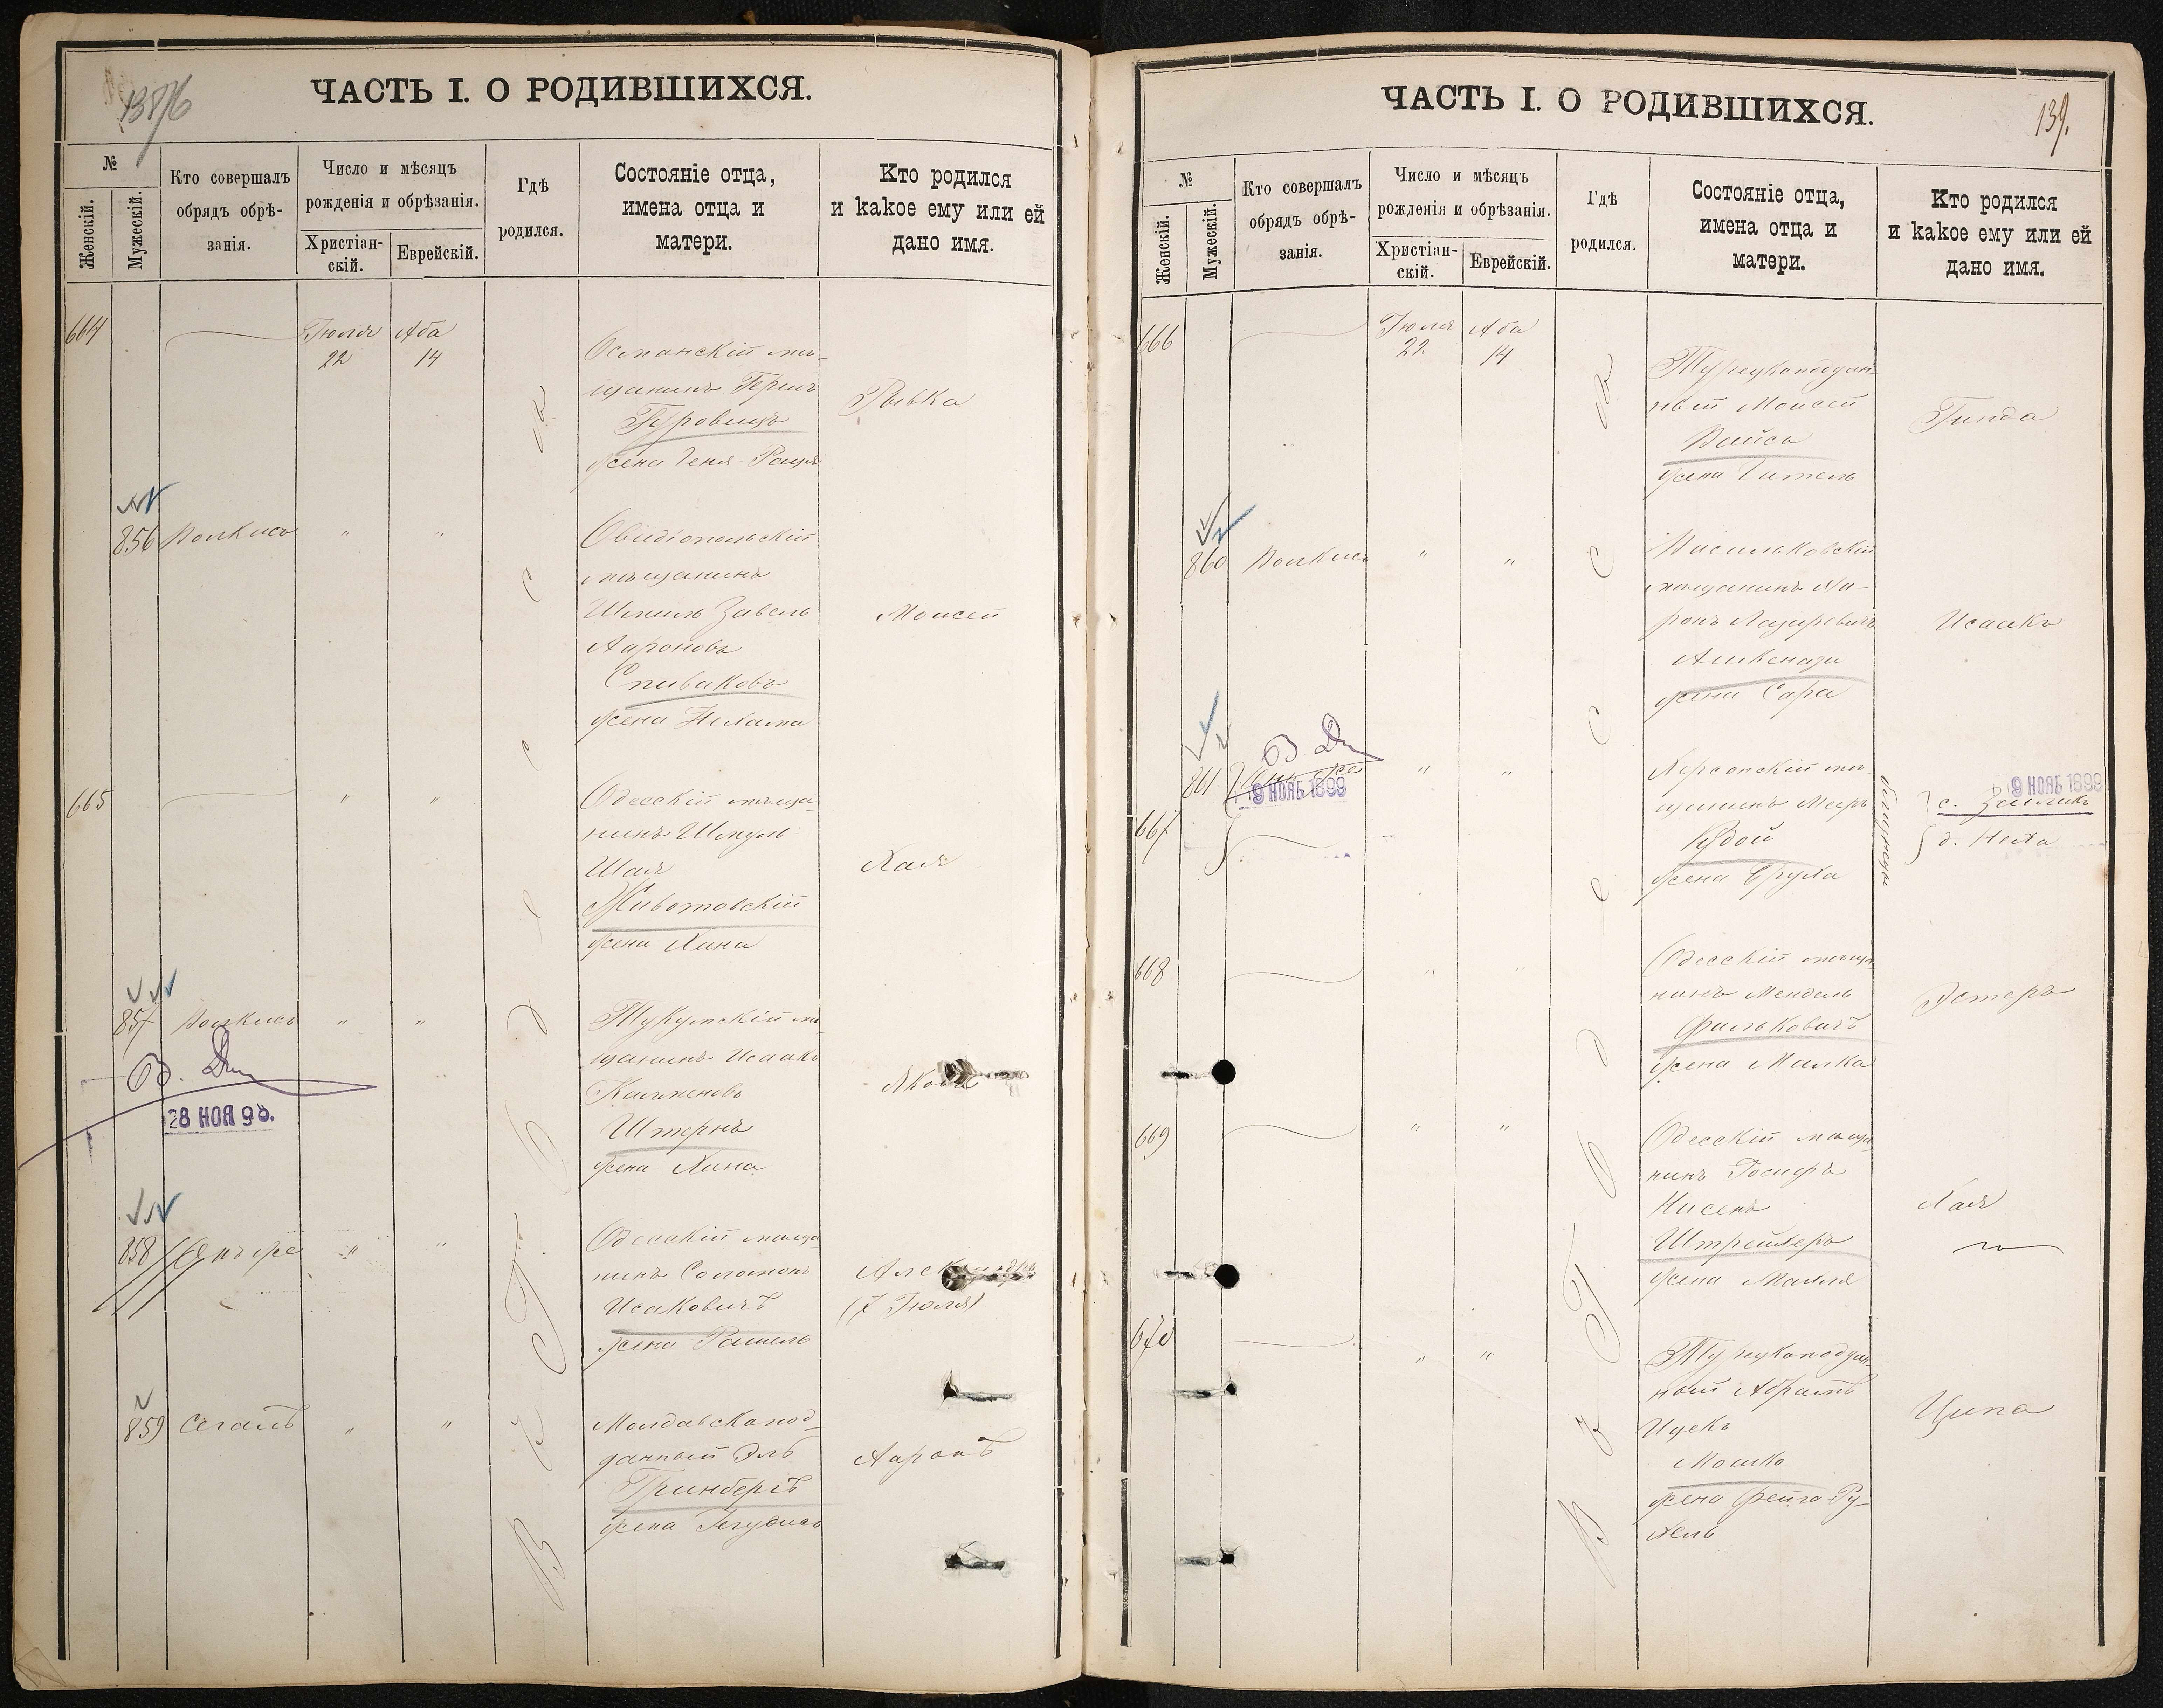 ЧАСТЬ I. О РОДИВШИХСЯ.
№
Женскій.
Мужескій.
Кто совершалъ
обрядъ обрѣ-
занія.
Число и мѣсяцъ
рожденія и обрѣзанія.
Христіан-
скій.
Еврейскій.
Гдѣ
родился.
Состояніе отца,
имена отца и
матери.
Кто родился
и какое ему или ей
дано имя.
664
Іюля
22
Аба
14
щанинъ Гершъ
Гуровицъ
жена Геня-
Рывка
856
" "
Овидіопольскій
мѣщанинъ
Шмилъ Завель
Аароновъ
Спиваковъ
жена Нехама
Моисей
665
" "
Одесскій мѣща-
нинъ Шмуль
Шая
Животовскій
жена Хана
Хая
857
" "
Тукумскій мѣ-
щанинъ Исаакъ
Штернъ
жена Хана
Яковъ
В. Дм
28 НОЯ 98.
858
Онъ же
" "
Одесскій мѣща-
нинъ Соломонъ
Исаковичъ
жена Рашель
Александръ
(7 Іюля)
859
Сегалъ
" "
Молдавскопод-
данный Эль
Гринбергъ
жена Гегудисъ
Ааронъ
В г. Одессѣ
ЧАСТЬ I. О РОДИВШИХСЯ.
139.
№
Женскій.
Мужескій.
Кто совершалъ
обрядъ обрѣ-
занія.
Число и мѣсяцъ
рожденія и обрѣзанія.
Христіан-
скій.
Еврейскій.
Гдѣ
родился.
Состояніе отца,
имена отца и
матери.
Кто родился
и какое ему или ей
дано имя.
666
Іюля
22
Аба
14
Турецкоподдан-
ный Моисей
Вайсъ
жена Гитель
Гинда
860
" "
Васильковскій
мѣщанинъ Аа-
ронъ Лазаревичъ
Ашкенази
жена Сара
Исаакъ
861
Онъ же
В. Дм
9 НОЯБ 1899
" "
Херсонскій мѣ-
щанинъ Мееръ
жена Бруха
близнецы
9 НОЯБ 1899
с. Зелликъ
667
д. Неха
668
" "
Одесскій мѣща-
нинъ Мендель
Фальковичъ
жена Малка
Эстеръ
669
" "
Одесскій мѣща-
нинъ Іосифъ
Нисенъ
Штреймеръ
жена Малля
Хая
670
" "
Турецкоподдан-
ный Абрамъ
Ицекъ
Мошко
жена Фейга Ру-
хель
Ципа
В г. Одессѣ